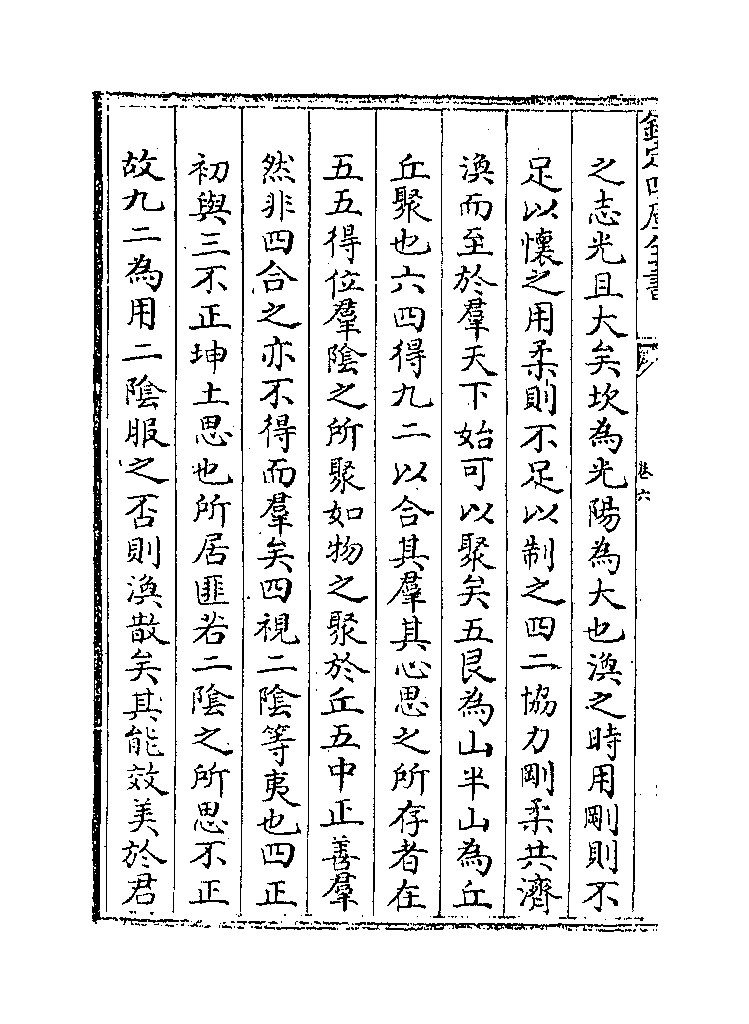 欽定四庫全書
卷六
之志光且大矣坎為光陽為大也渙之時用剛則不
足以懷之用柔則不足以制之四二協力剛柔共濟
渙而至於羣天下始可以聚矣五艮為山半山為丘
丘聚也六四得九二以合其羣其心思之所存者在
五五得位羣陰之所聚如物之聚於丘五中正善羣
然非四合之亦不得而羣矣四視二陰等夷也四正
初與三不正坤土思也所居匪若二陰之所思不正
故九二為用二陰服之否則渙散矣其能效美於君